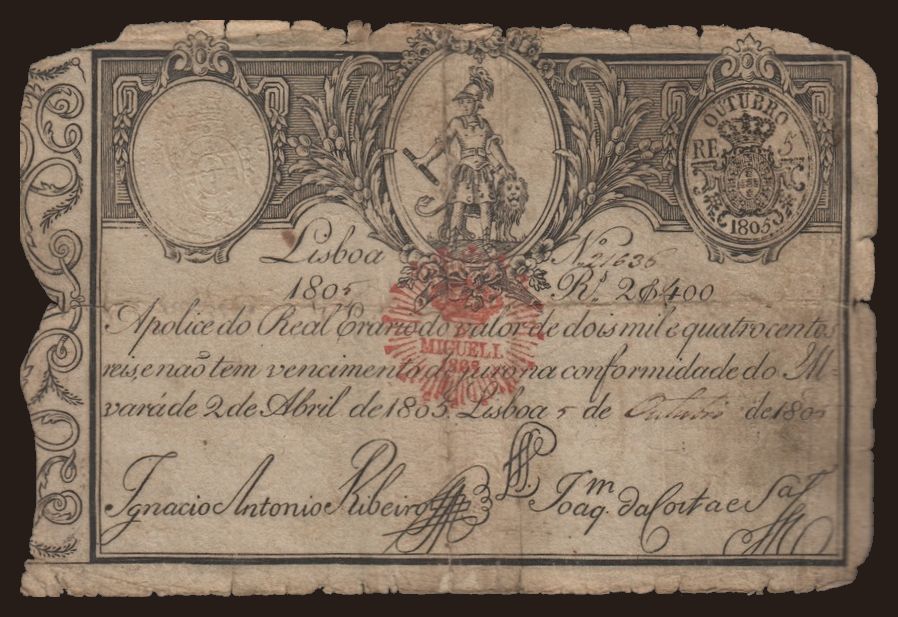 OUTUBRO
RE 5
1805
Lisboa
Nº 21636
1805
Rs. 2$400
Apolice do Real Erario do valor de dois mil e quatrocentos
reis, e não tem vencimento de juro na conformidade do Al-
vará de 2 de Abril de 1805. Lisboa 5 de Outubro de 1805
MIGUEL I.
Ignacio Antonio Ribeiro
Joaqm. da Costa e Sa